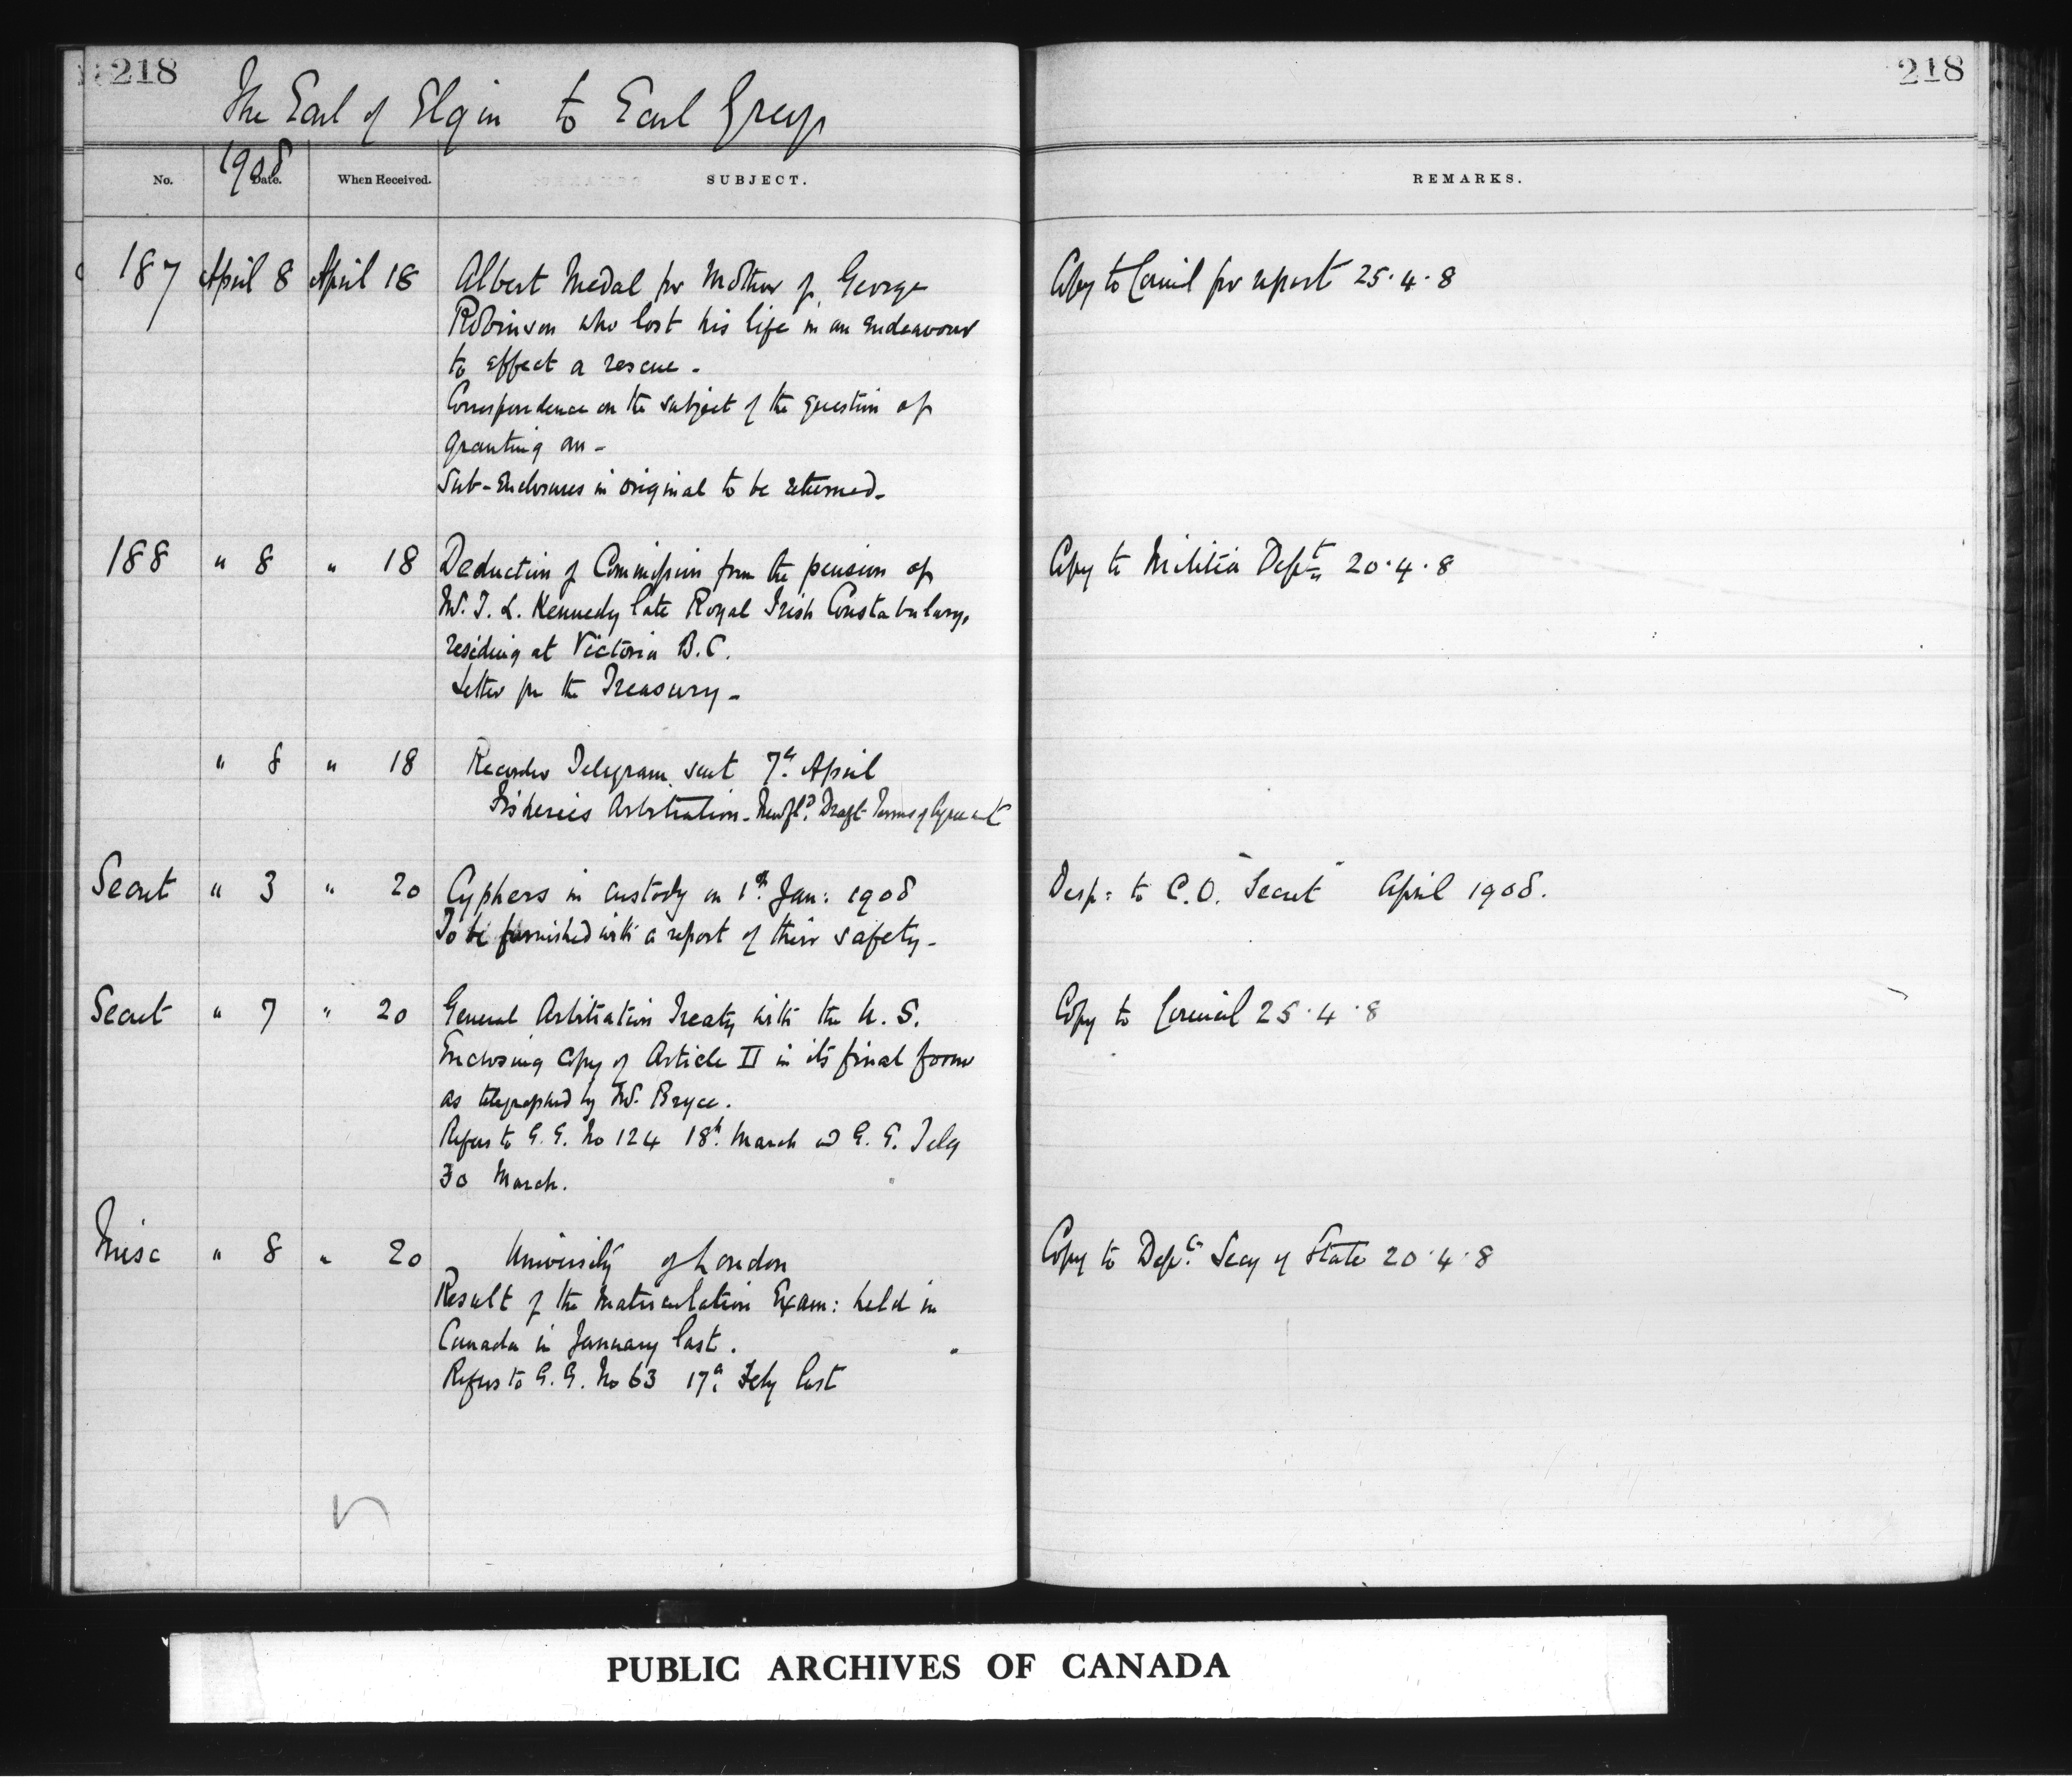 218
218
The Earl of Elgin to Earl Grey
1908
No. Date. When Received. SUBJECT. REMARKS.
187 April 8 April 18 Albert Medal for Mother of George Copy to Council for report 25.4.8
Robinson who lost his life in an endeavour
to effect a rescue -
Correspondence on the subject of the question of
granting an -
Sub-Enclosures in original to be returned -
188 " 8 " 18 Deduction of Commission from the pension of Copy to Militia Dept 20.4.8
Mr. T. L. Kennedy late Royal Irish Constabulary,
residing at Victoria B.C.
Letter fm the Treasury -
" 8 " 18 Records Telegram sent 7th April
Fisheries Arbitration - Newfld Draft Terms of Agreemt
Secret " 3 " 20 Cyphers in custody on 1st Jan: 1908 Desp: to C.O. "Secret" April 1908.
To be furnished with a report of their safety -
Secret " 7 " 20 General Arbitration Treaty with the U.S. Copy to Council 25.4.8
Enclosing Copy of Article II in its final form
as telegraphed by Mr. Bryce.
Refers to G.G. No 124 18th March and G.G. Tely
30 March.
Misc " 8 " 20 University of London Copy to Dept Secy of State 20.4.8
Result of the Matriculation Exam: held in
Canada in January last.
Refers to G.G. No 63 17th Feby last
PUBLIC ARCHIVES OF CANADA